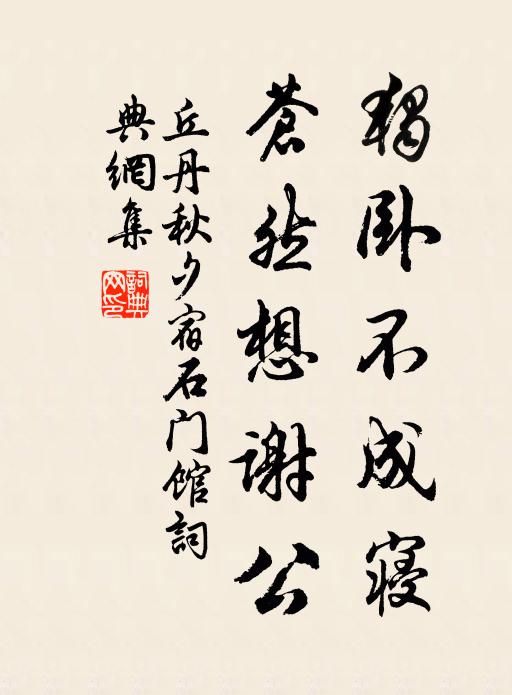 獨卧不成寝
蒼然想謝公
丘丹秋夕宿石门馆詞
典網集
詞典
网印